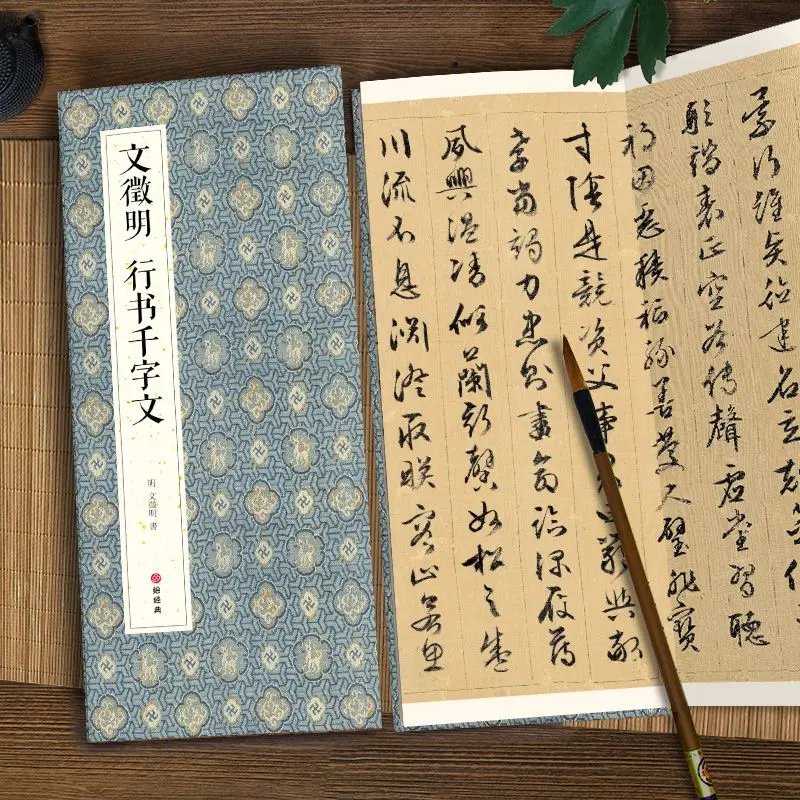 文徵明 行书千字文
明 文徵明 書
经典
景行維賢
建名立
形端表正空谷傳聲虛堂習聽
禍因惡積福緣善慶尺璧非寶
寸陰是競資父事君曰嚴與敬
孝當竭力忠則盡命臨深履薄
夙興溫凊似蘭斯馨如松之盛
川流不息淵澄取映容止若思